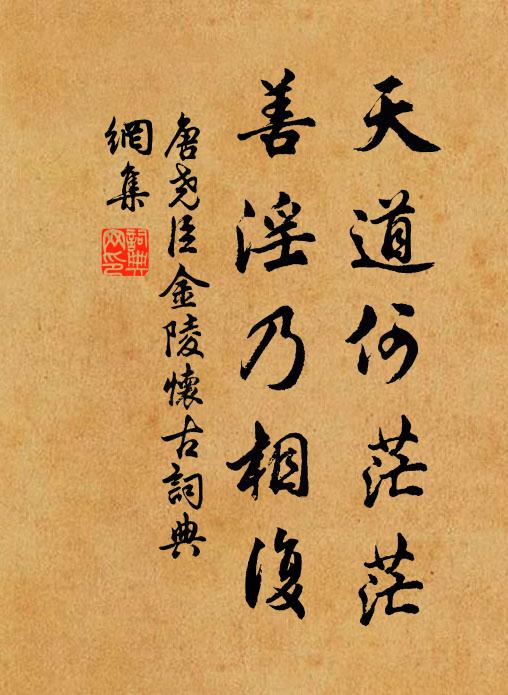 天道何茫茫
善淫乃相復
唐堯臣金陵懷古詞典
網集
詞典
网印